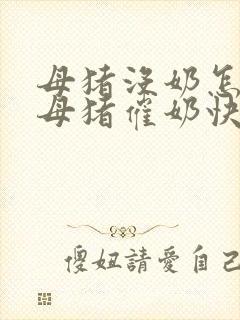 母猪没奶怎
母猪催奶快
傻妞請愛自己